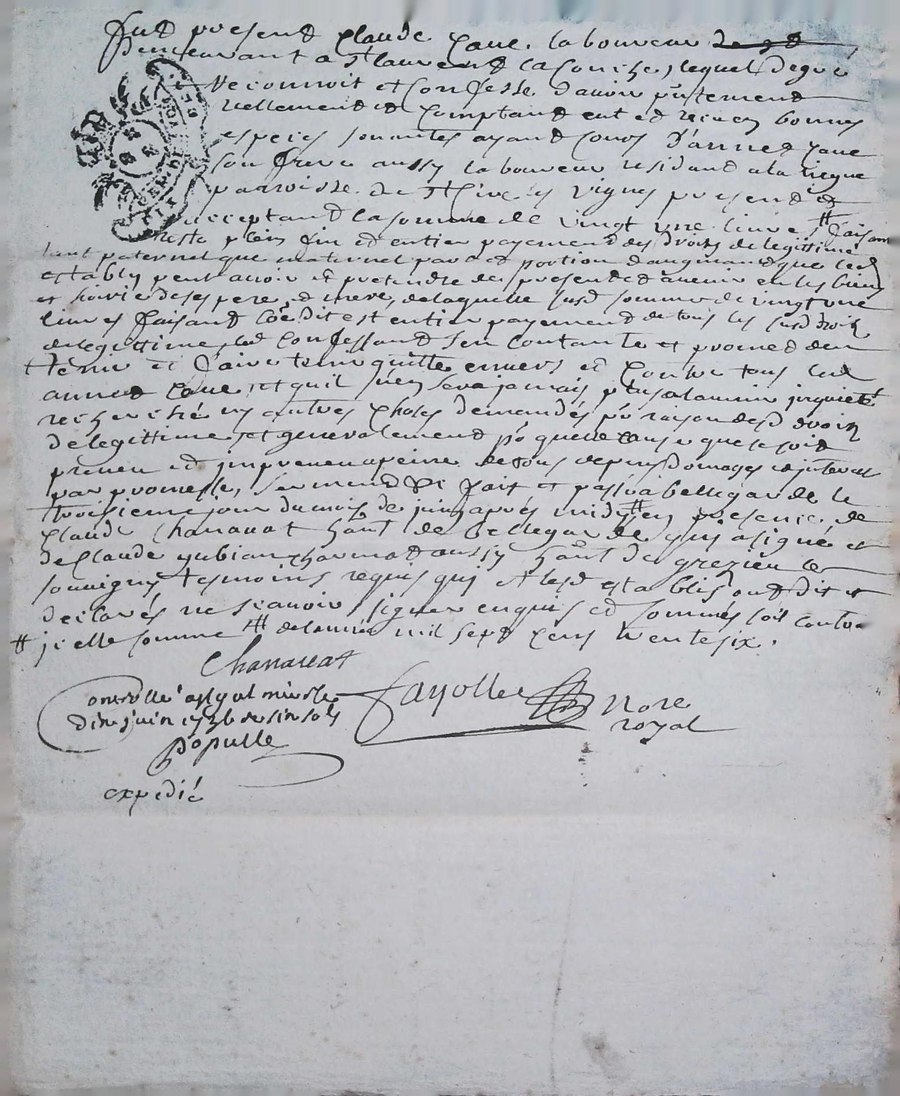 fut present Claude Cave laboureur
demeurant a St laurent la Conche, lequel de gré
reconnoit et Confesse d'avoir presentement
reellement et Comptand eut et receu en bonnes
especes sonantes ayand Cours d'annet Cave
son frere aussy laboureur residand a la
parroisse de St Cire les vignes presend et
acceptand la somme de vingt une livre faisan
reste plein fin et entier payement des droits de legittime
tant paternel que maternel part et portion d'augmand que led
estably peut avoir et pretendre de present et a venir en les biens
et hoirie de ses pere et mere, de laquelle susd somme de vingt une
livres faisand Co dit est entier payement de tous les susd droits
de legittime, led Confessand s'en contante et promed d'en
tenir et faire tenir quitte envers et Contre tous led
annet Cave, et qu'il n'en sera jamais plus a l'avenir inquieté
recherché ny autres choses demandés pr raison desd droits
de legittime, et generalement pr quelle cause que ce soit
preveu et impreveu a peine de tous depens domages et interest
par promesse, serment &c fait et passé a bellegarde le
troisieme jour du mois de juin apres midy # en presence de
Claude Chanavat hant de bellegarde qui a signé et
de Claude aussy hant de grezieu le
souvigny tesmoins requis qui et lesd establis ont dit et
declarés ne scavoir signer enquis et sommés soit controllé
# icelle somme ## de l'année mil sept cens trente six.
Chanavat
Controllé a st galmier le
dix juin 1736 six sols
Fayolle Nore
royal
Popule
expedié